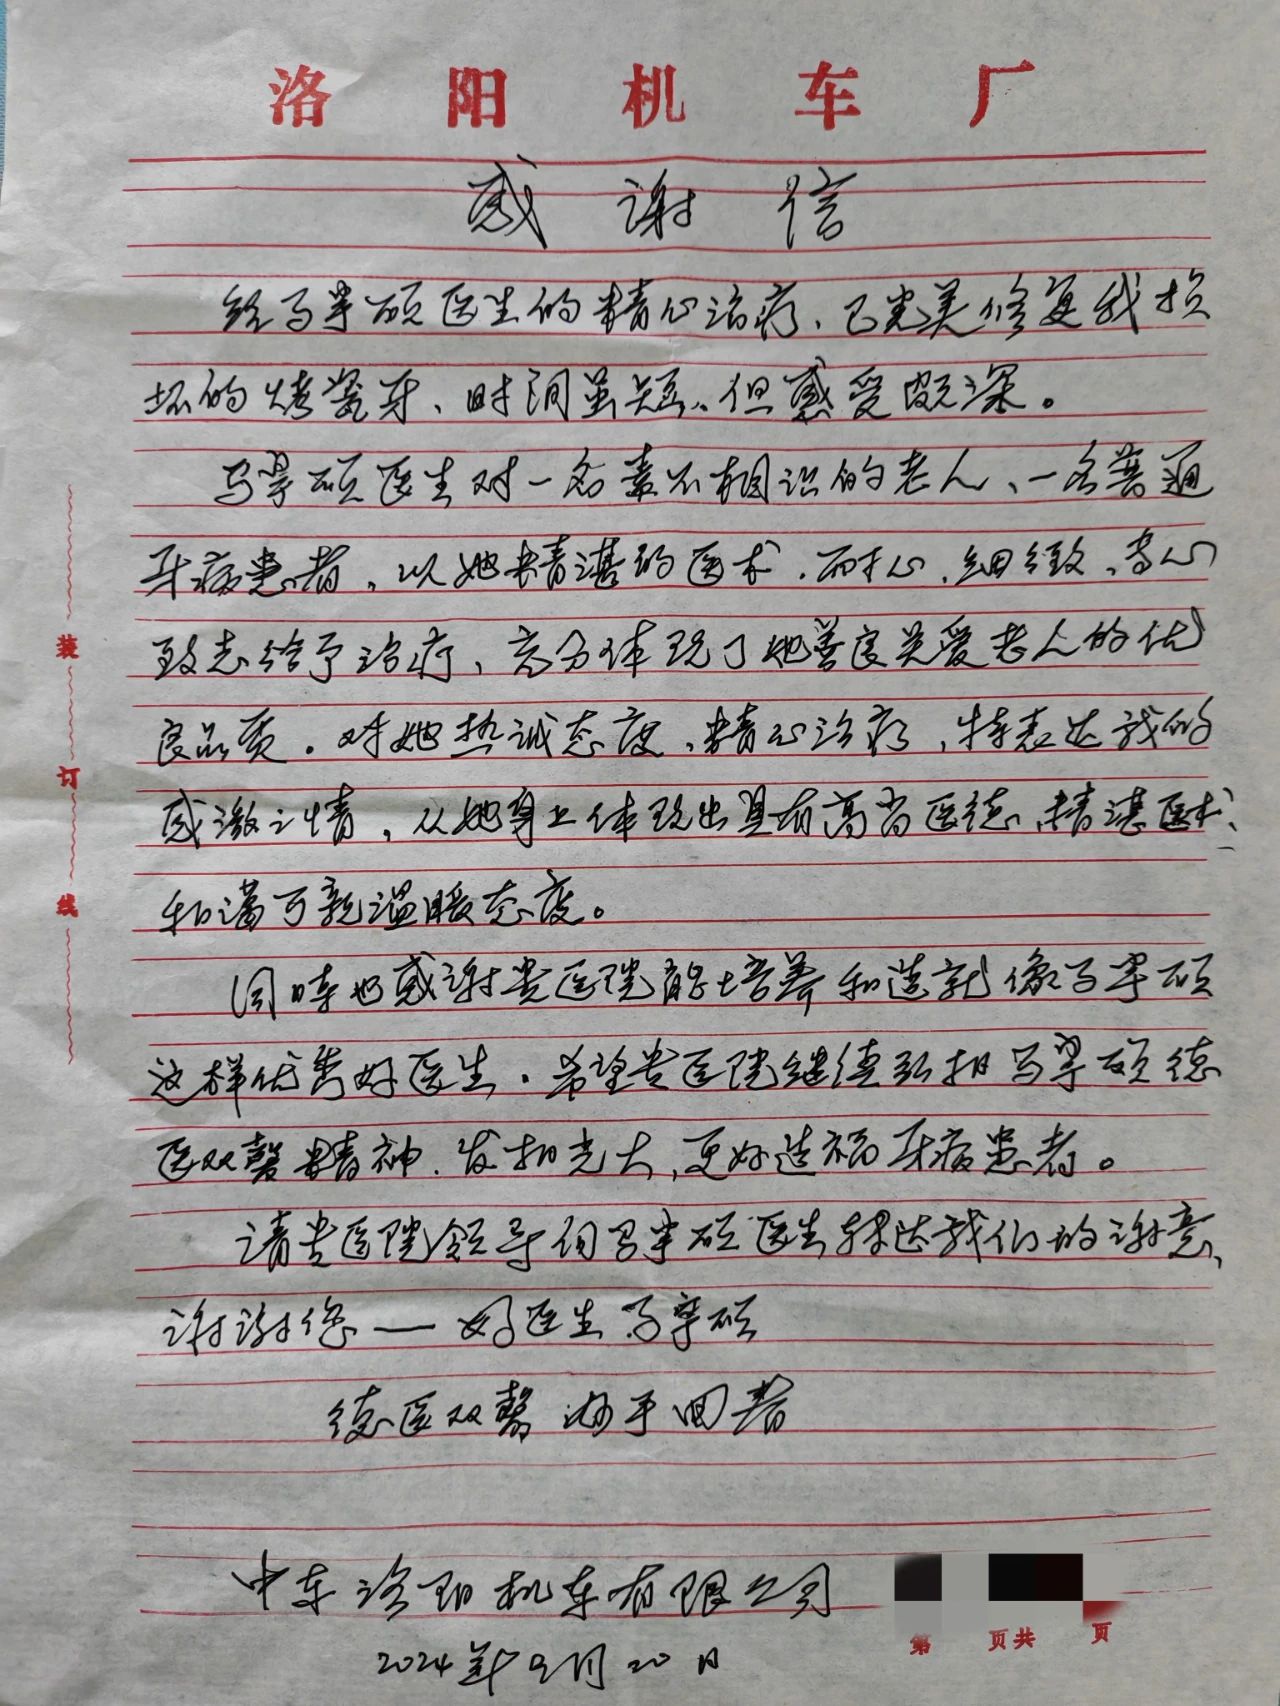 洛阳机车厂
感谢信
经马 硕医生的精心治疗、已完美修复我损
坏的烤瓷牙、时间虽短、但感受颇深。
马 硕医生对一名素不相识的老人、一名普通
牙病患者，以她精湛的医术、耐心、细致、专心
致志给予治疗、充分体现了她善良关爱老人的优
良品质。对她热诚态度、精心治疗，特表达我的
感激之情，从她身上体现出具有高尚医德、精湛医术、
和蔼可亲温暖态度。
同时也感谢贵医院能培养和造就像马 硕
这样优秀好医生。希望贵医院继续弘扬马 硕德
医双馨精神、发扬光大，更好造福牙病患者。
请贵医院领导向马 硕医生转达我们的谢意、
谢谢您—好医生马 硕
德医双馨 妙手回春
中车洛阳机车有限公司
2024年9月20日
第 页共 页
装订线